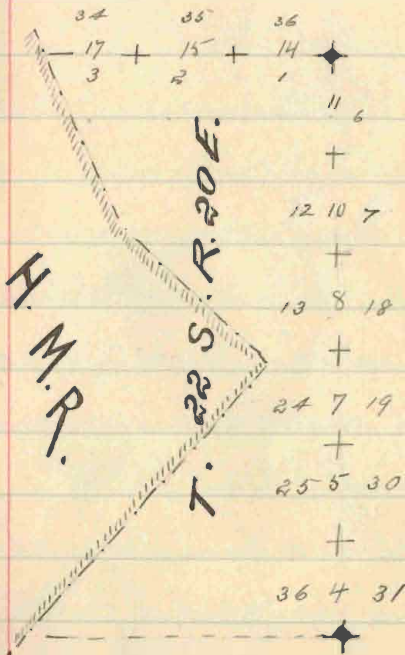 34 35 36
17 15 14
3 2 1
11 6
12 10 7
13 8 18
24 7 19
25 5 30
36 4 31
T. 22 S. R. 20 E.
H. M. R.